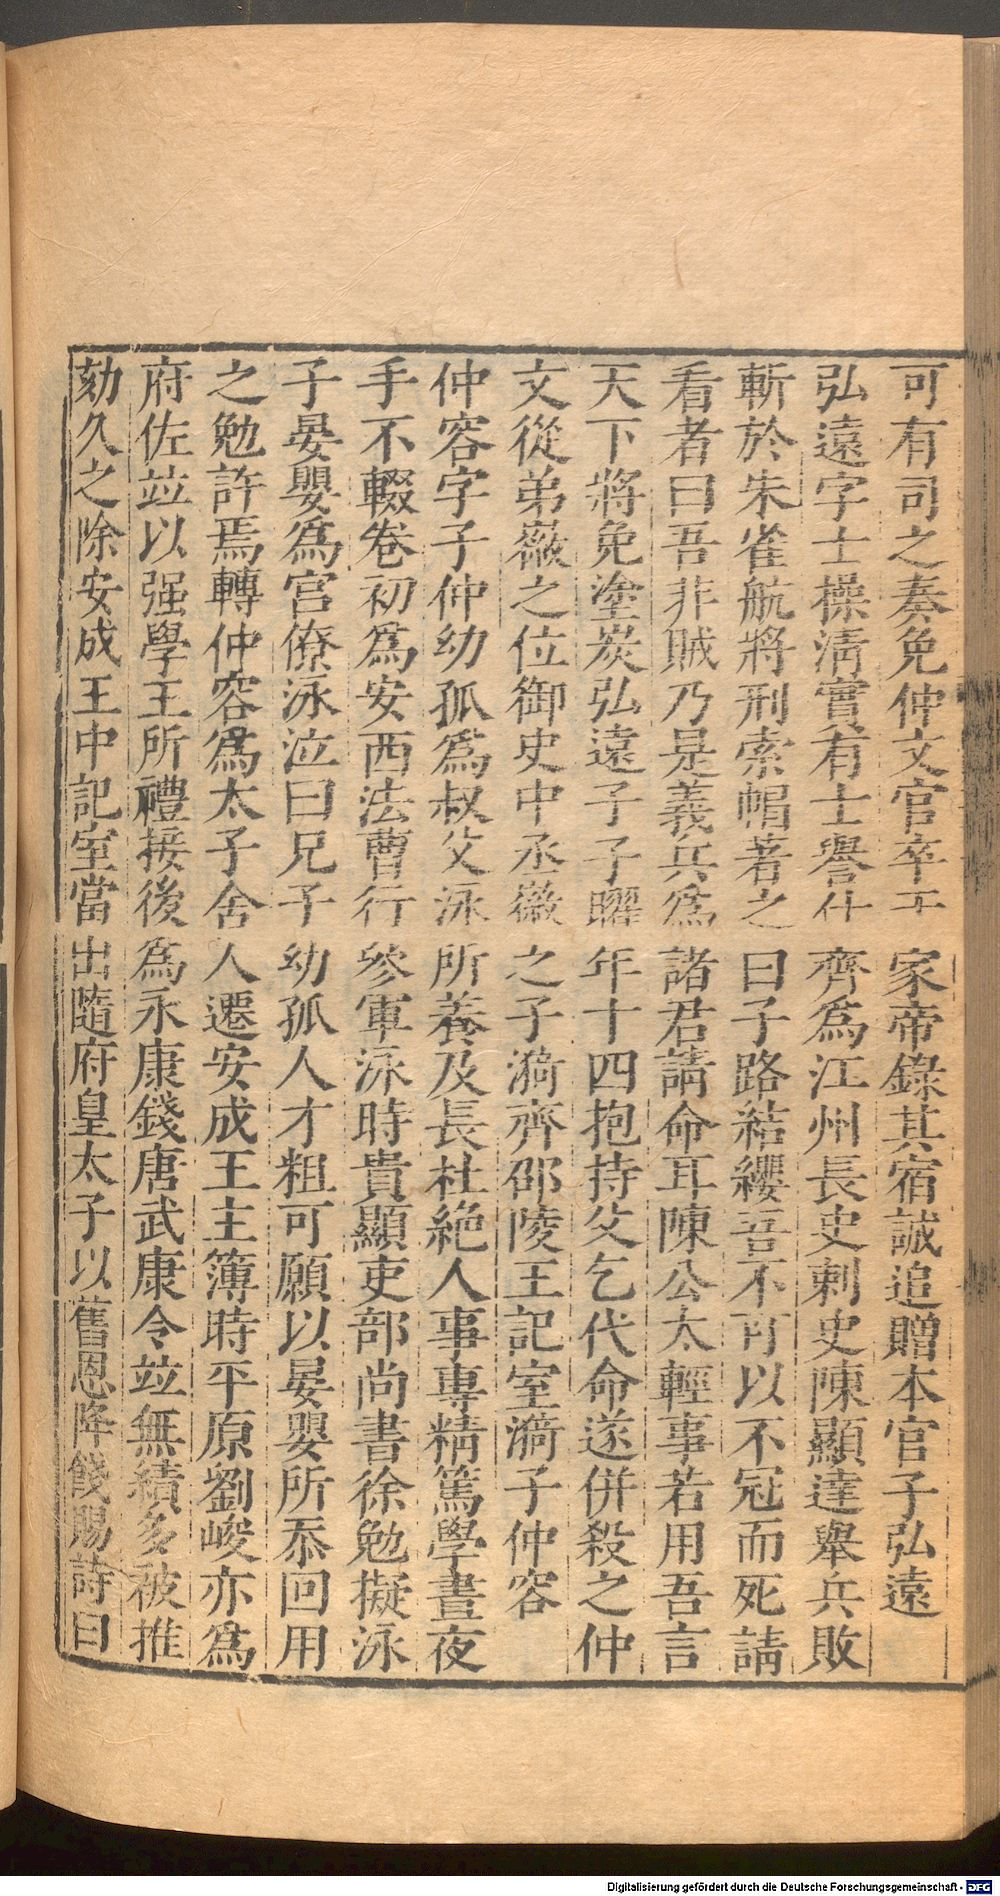 可有司之奏免仲文官卒于家帝錄其宿誠追贈本官子弘遠
弘遠字士操淸實有士譽仕齊爲江州長史刺史陳顯達舉兵敗
斬於朱雀航將刑索帽著之曰子路結纓吾不可以不冠而死請
看者曰吾非賊乃是義兵爲諸君請命耳陳公太輕事若用吾言
天下將免塗炭弘遠子子曜年十四抱持父乞代命遂併殺之仲
文從弟㣲之位御史中丞㣲之子漪齊邵陵王記室漪子仲容
仲容字子仲幼孤爲叔父泳所養及長杜絶人事專精篤學晝夜
手不輟卷初爲安西法曹行參軍泳時貴顯吏部尚書徐勉擬泳
子晏嬰爲宮僚泳泣曰兄子幼孤人才粗可願以晏嬰所忝回用
之勉許焉轉仲容爲太子舍人遷安成王主簿時平原劉峻亦爲
府佐竝以强學王所禮接後爲永康錢唐武康令竝無績多被推
劾久之除安成王中記室當出隨府皇太子以舊恩降餞賜詩曰
Digitalisierung gefördert durch die Deutsche Forschungsgemeinschaft - DFG